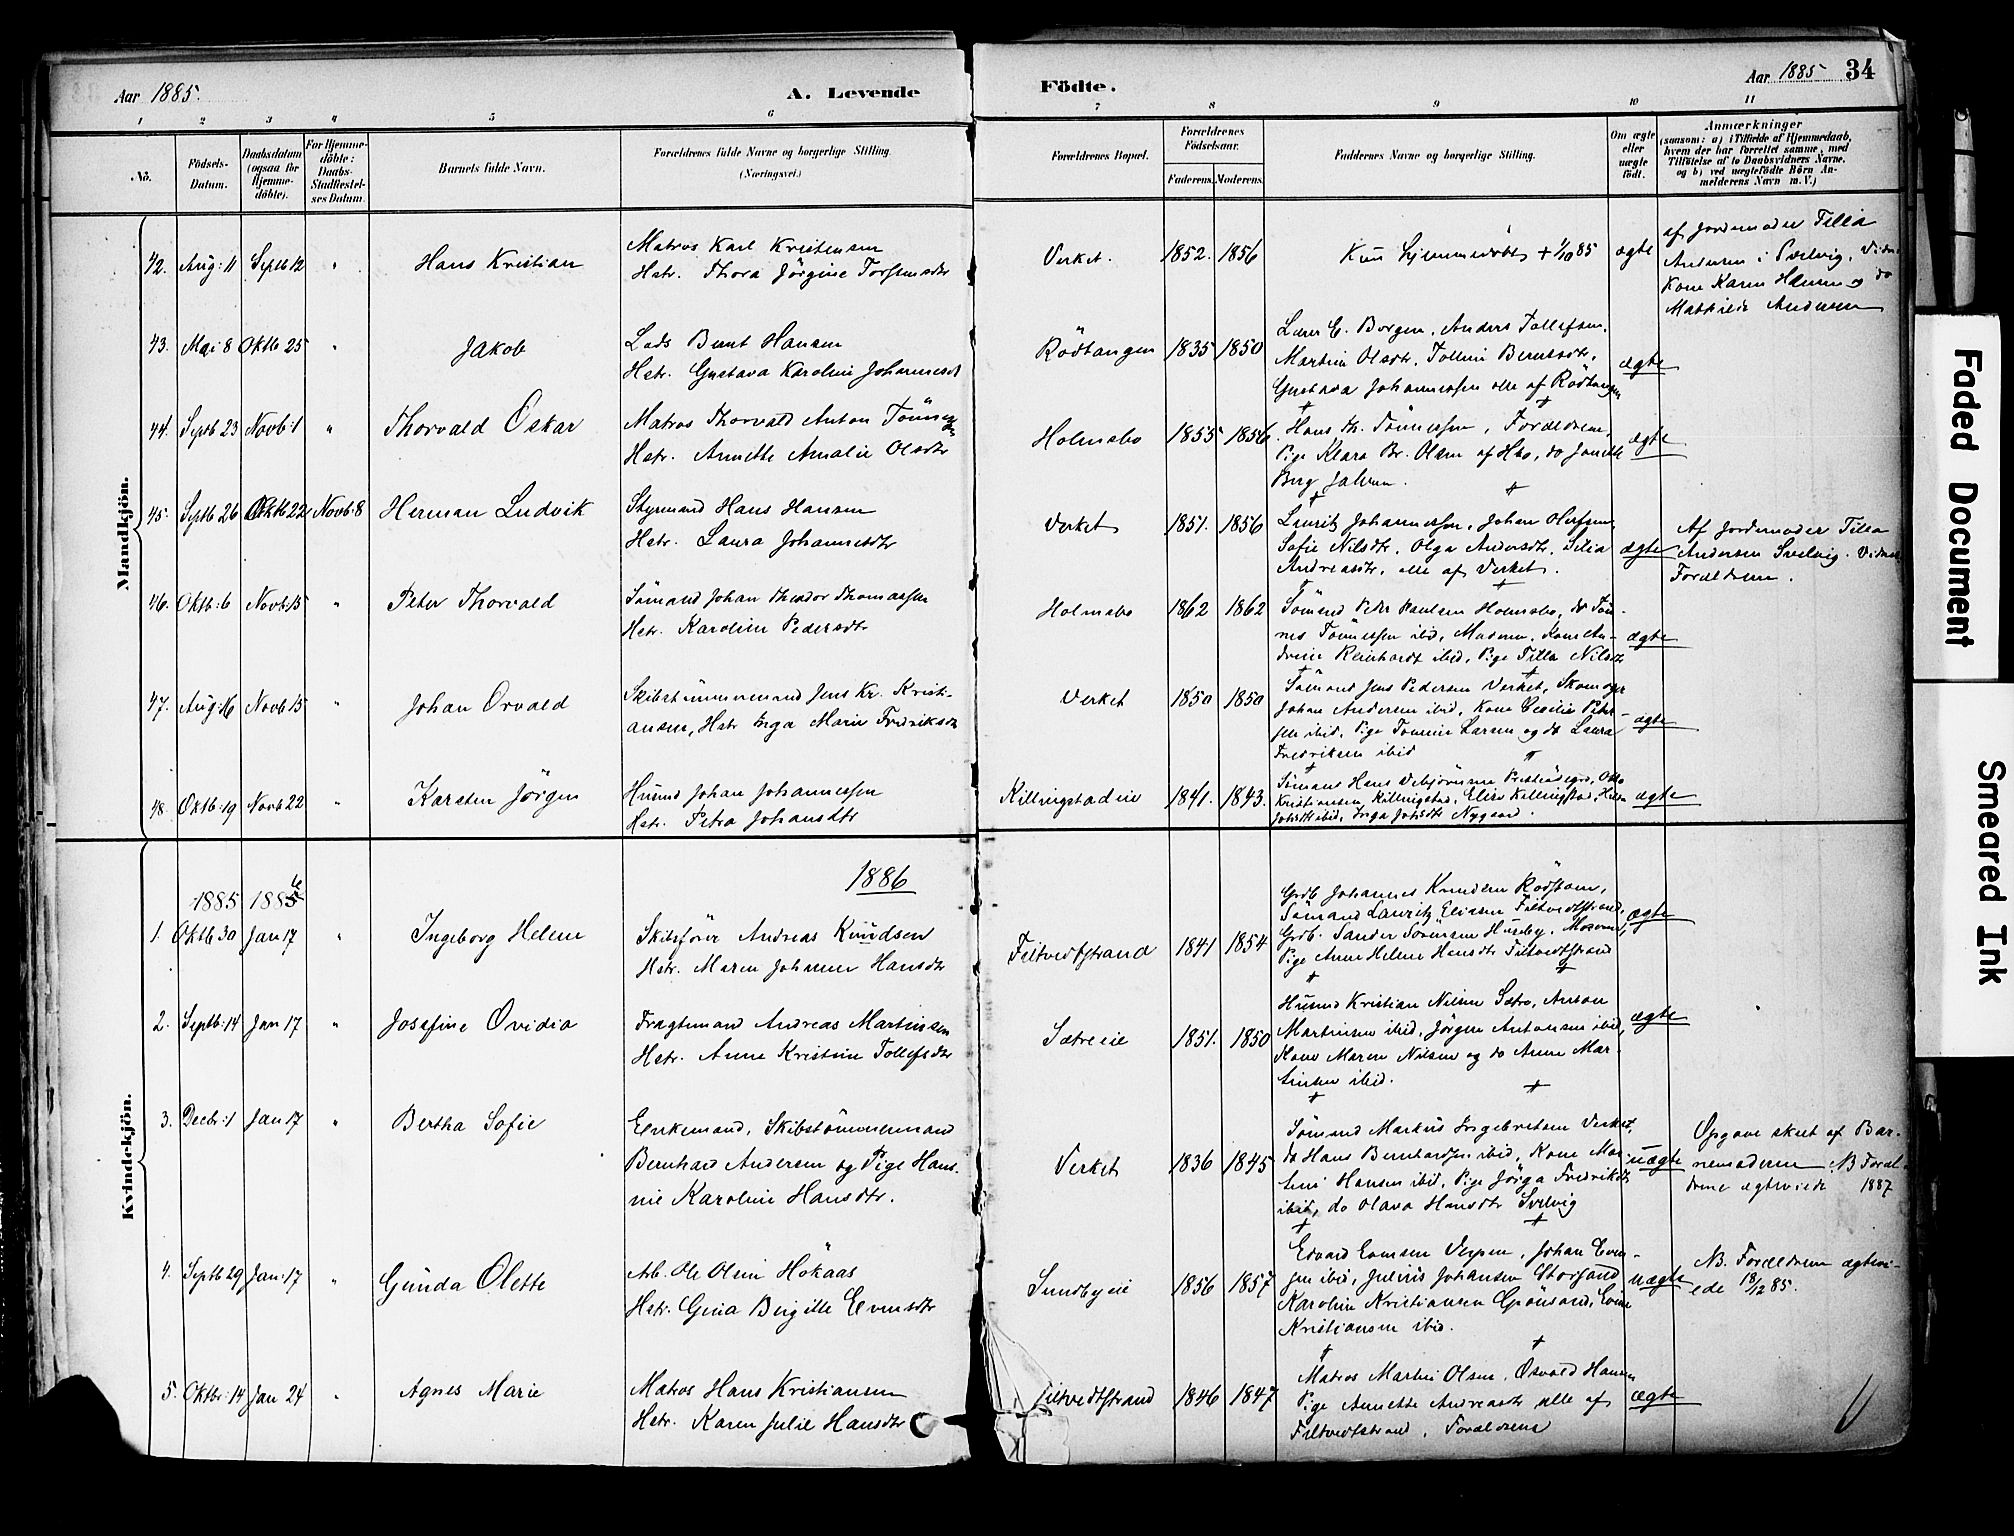 Aar 1885.
A. Levende
Födte.
Aar 1885
34
1 2 3 4 5 6 7 8 9 10 11
No.
Födsels-
Datum.
Daabsdatum
(ogsaa for
Hjemme-
döbte).
For Hjemme-
döbte:
Daabs-
Stadfæstel-
ses Datum.
Barnets fulde Navn.
Forældrenes fulde Navne og borgerlige Stilling.
(Næringsvei.)
Forældrenes Bopæl.
Forældrenes
Födselsaar.
Faderens. Moderens.
Faddernes Navne og borgerlige Stilling.
Om ægte
eller
uægte
födt.
Anmærkninger
(saasom: a) i Tilfælde af Hjemmedaab,
hvem der har forrettet samme, med
Tilföielse af to Daabsvidners Navne,
og b) ved uægtefödte Börn An-
melderens Navn m. V.)
Mandkjön.
42. Aug: 11 Septb 12 " Hans Kristian
Matros Karl Kristensen
Hstr. Thora Jörgine
Verket. 1852. 1856
Kun hjemmedöbt + 1/10 85
ægte
af Jordemoder Tilla
Andersen i Svelvig, Vidner
Kone Karen Hansen og do
Mathilde Andersen
43. Mai 8 Oktb 25 " Jakob
Lods Bernt Hansen
Hstr. Gustava Karoline Johannesdt
Rödtangen 1835 1850
Lærer C. Borgen, Anders Tollefsen,
Martin Olsdtr, Berntsdtr,
Gustava Johannessen alle af Rödtangen
ægte
44. Septb 23 Novb: 1 " Thorvald Oskar
Matros Thorvald Anton Tönnesen
Hstr. Annette Amalie Olsdtr
Holmsbo 1855 1856
Hans Th. Tönnessen, Forældrene,
Pige Klara Br. Olsen af Hbo, do
Berg
ægte
45. Septb 26 Oktb 22 Novb: 8 Herman Ludvik
Styrmand Hans Hansen
Hstr. Laura Johannesdtr
Verket 1851. 1856
Lauritz Johannessen, Johan Olefsen
Sofie Nilsdtr, Olga Andersdtr,
Andreasdtr, alle af Verket.
ægte
Af Jordemoder Tilla
Andersen Svelvig. Vidner
Forældrene.
46. Oktb: 6 Novb: 15 " Peter Thorvald
Sömand Johan Theodor Thomassen
Hstr. Karoline Pedersdtr
Holmsbo 1862 1862
Sömand Peder Paulsen Holmsbo, do Tön-
nes Tönnessen ibid, Kone An-
Reinhardt ibid, Pige Tilla Nilsdtr
ægte
47. Aug: 16 Novb 15 " Johan Orvald
Skibstömmermand Jens Kr. Kristi-
ansen, Hstr Inga Marie Fredriksdtr
Verket 1850 1850
Sömand Jens Pedersen Verket,
Johan Andersen ibid, Kone Cecilie Peter-
sen ibid, Pige Larsen og do Laura
Fredriksen ibid
ægte
48. Oktb: 19 Novb 22 " Karsten Jörgen
Husmd Johan Johannessen
Hstr. Petra Johansdtr
Killingstadeie 1841. 1843.
Sömand Hans
Kristiansen Killingstad, Elise Killingstad,
ibid, Inga Nygaard.
ægte
Kvindekjön.
1886
1885 1886
1. Oktb 30 Jan 17 " Ingeborg Helene
Skibsförer Andreas Knudsen
Hstr. Maren Hansdtr
Filtvedtstrand 1841 1854
Grdb. Johannes Knudsen Rödstam,
Sömand Lauritz Eliasen Filtvedtstrand,
Grdb. Sander Sörensen Huseby,
Pige Anne Helene Hansdtr Filtvedtstrand
ægte
2. Septb: 14 Jan 17 " Josefine Ovidia
Fragtmand Andreas Martinsen
Hstr. Anne Kristine Tollefsdtr
Sætreeie 1851. 1850
Husmd Kristian Nilsen Sætre, Anton
Martinsen ibid, Jörgen Antonsen ibid,
Kone Maren Nilsen og do Anne Mar-
tinsen ibid.
ægte
3. Decbr: 1 Jan 17 " Bertha Sofie
Enkemand, Skibstömmermand
Bernhard Andersen og Pige Han-
nie Karoline Hansdtr.
Verket 1836 1845
Sömand Markus Ingebretsen Verket,
do Hans Bernhardsen ibid, Kone
Hansen ibid, Pige Jörga Fredriksdtr
ibid, do Olava Hansdtr Svelvig
uægte
Opgave skeet af Bar-
nemoderen. NB Foræl-
drene ægteviede 1887
4. Septb 29 Jan: 17 " Gunda Olette
Arb. Ole Olsen Hökaas
Hstr. Gina Birgitte Evensdtr
Sundbyeie 1856 1857
Edvard Evensen Johan Even-
sen ibid, Julius Johansen Storsand
Karoline Kristiansen Grönsand,
Kristiansen ibid.
uægte
NB. Forældrene ægtevi-
ede 18/12 85.
5. Oktbr: 14 Jan 24 " Agnes Marie
Matros Hans Kristiansen
Hstr. Karen Julie Hansdtr
Filtvedtstrand 1846 1847
Matros Martin Olsen, Osvald Hansen
Pige Annette Andreasdtr alle af
Filtvedtstrand, Forældrene
ægte
Faded Document
Smeared Ink